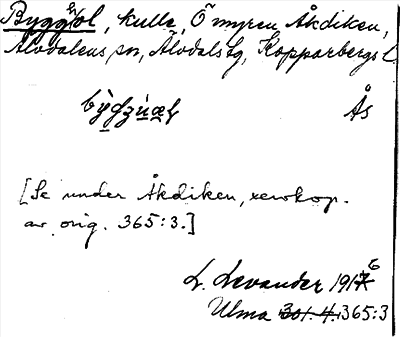 Bygghol, kulle, Ö myren Åkdiken,
Älvdalens sn, Älvdals tg, Kopparbergs l.
Ås
[Se under Åkdiken, xeroxkop.
av orig. 365:3.]
L. Levander 1916
Ulma 301.4. 365:3